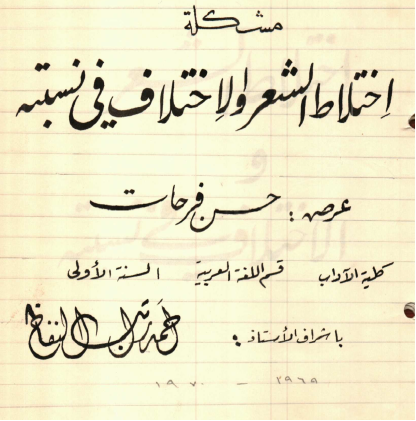 مشكلة
إختلاط الشعر والإختلاف في نسبته
عرض : حسن فرحات
كلية الآداب قسم اللغة العربية السنة الأولى
باشراف الأستاذ : أحمد راتب النفاخ
١٩٦٩ - ١٩٧٠